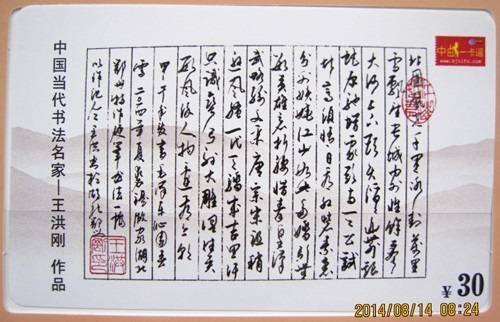 中国当代书法名家—王洪刚 作品
北国风光千里冰封万里
雪飘望长城内外惟余莽
大河上下顿失滔滔山舞银
蛇原驰蜡象欲与天公试
比高须晴日看红装素裹
分外妖娆江山如此多娇引无
数英雄竞折腰惜秦皇汉
武略输文采唐宗宋祖稍
逊风骚一代天骄成吉思汗
只识弯弓射大雕俱往矣
数风流人物还看今朝
一卡通
¥30
2014/08/14 08:24